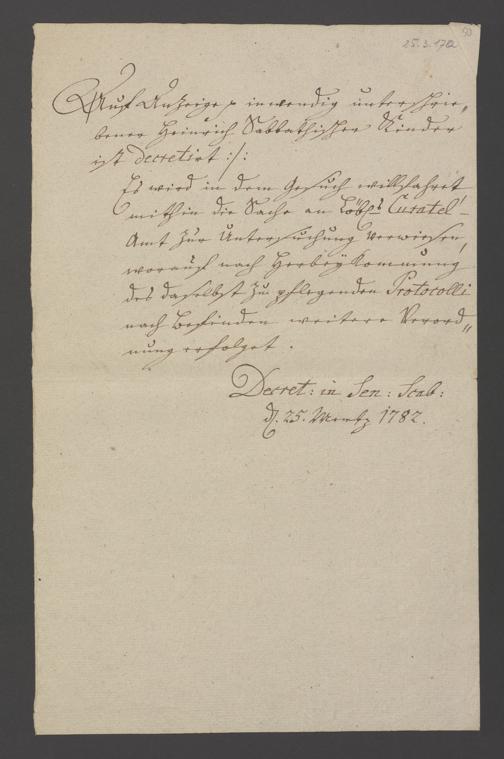 50
25.3.1782
Auf Anzeige inwendig unterschrie„
bener Heinrich Sabbathischer Kinder
ist decretirt :/:
Es wird in dem Gesuch willfahret
mithin die Sache an Löbl. Curatel-
Amt zur Untersuchung verwiesen,
worauf nach Herbeykommung
des daselbst zu pflegenden Protocolli
nach Befinden weitere Verord„
nung erfolget.
Decret: in Sen: Scab:
d. 25. Mertz 1782.